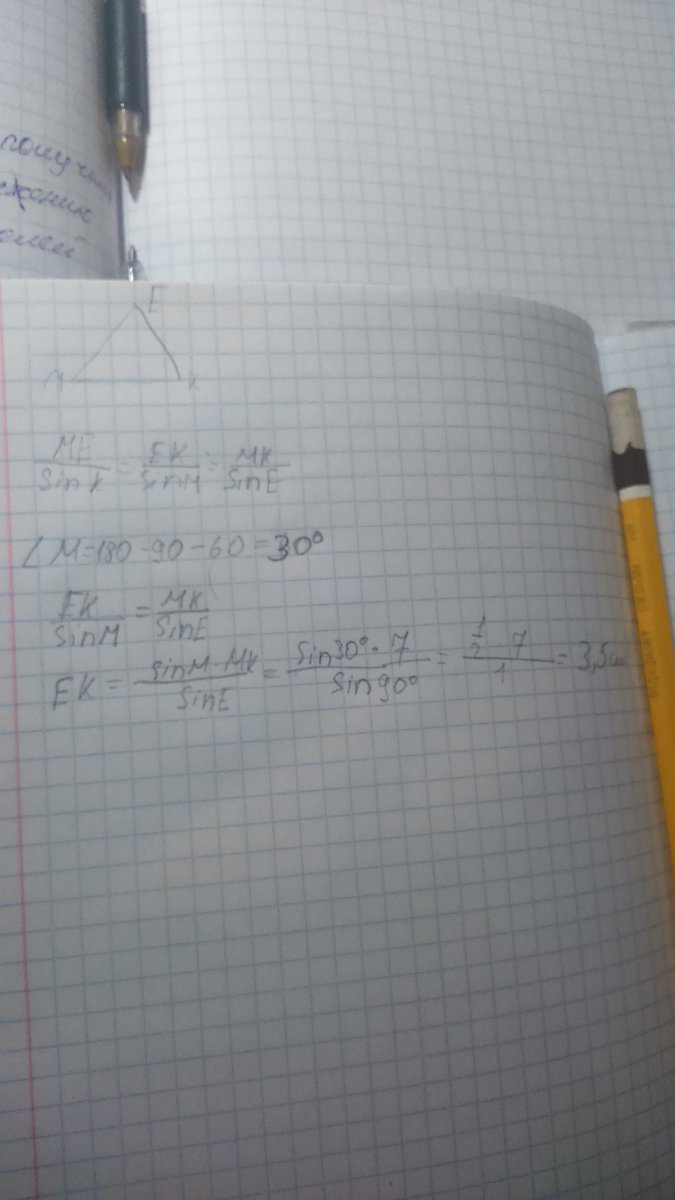 E
M K
ME/sin K = EK/sin M = MK/sin E
∠M=180-90-60=30°
EK/sin M = MK/sin E
EK = sin M·MK/sin E = sin30°·7/sin90° = 1/2·7/1 = 3,5см